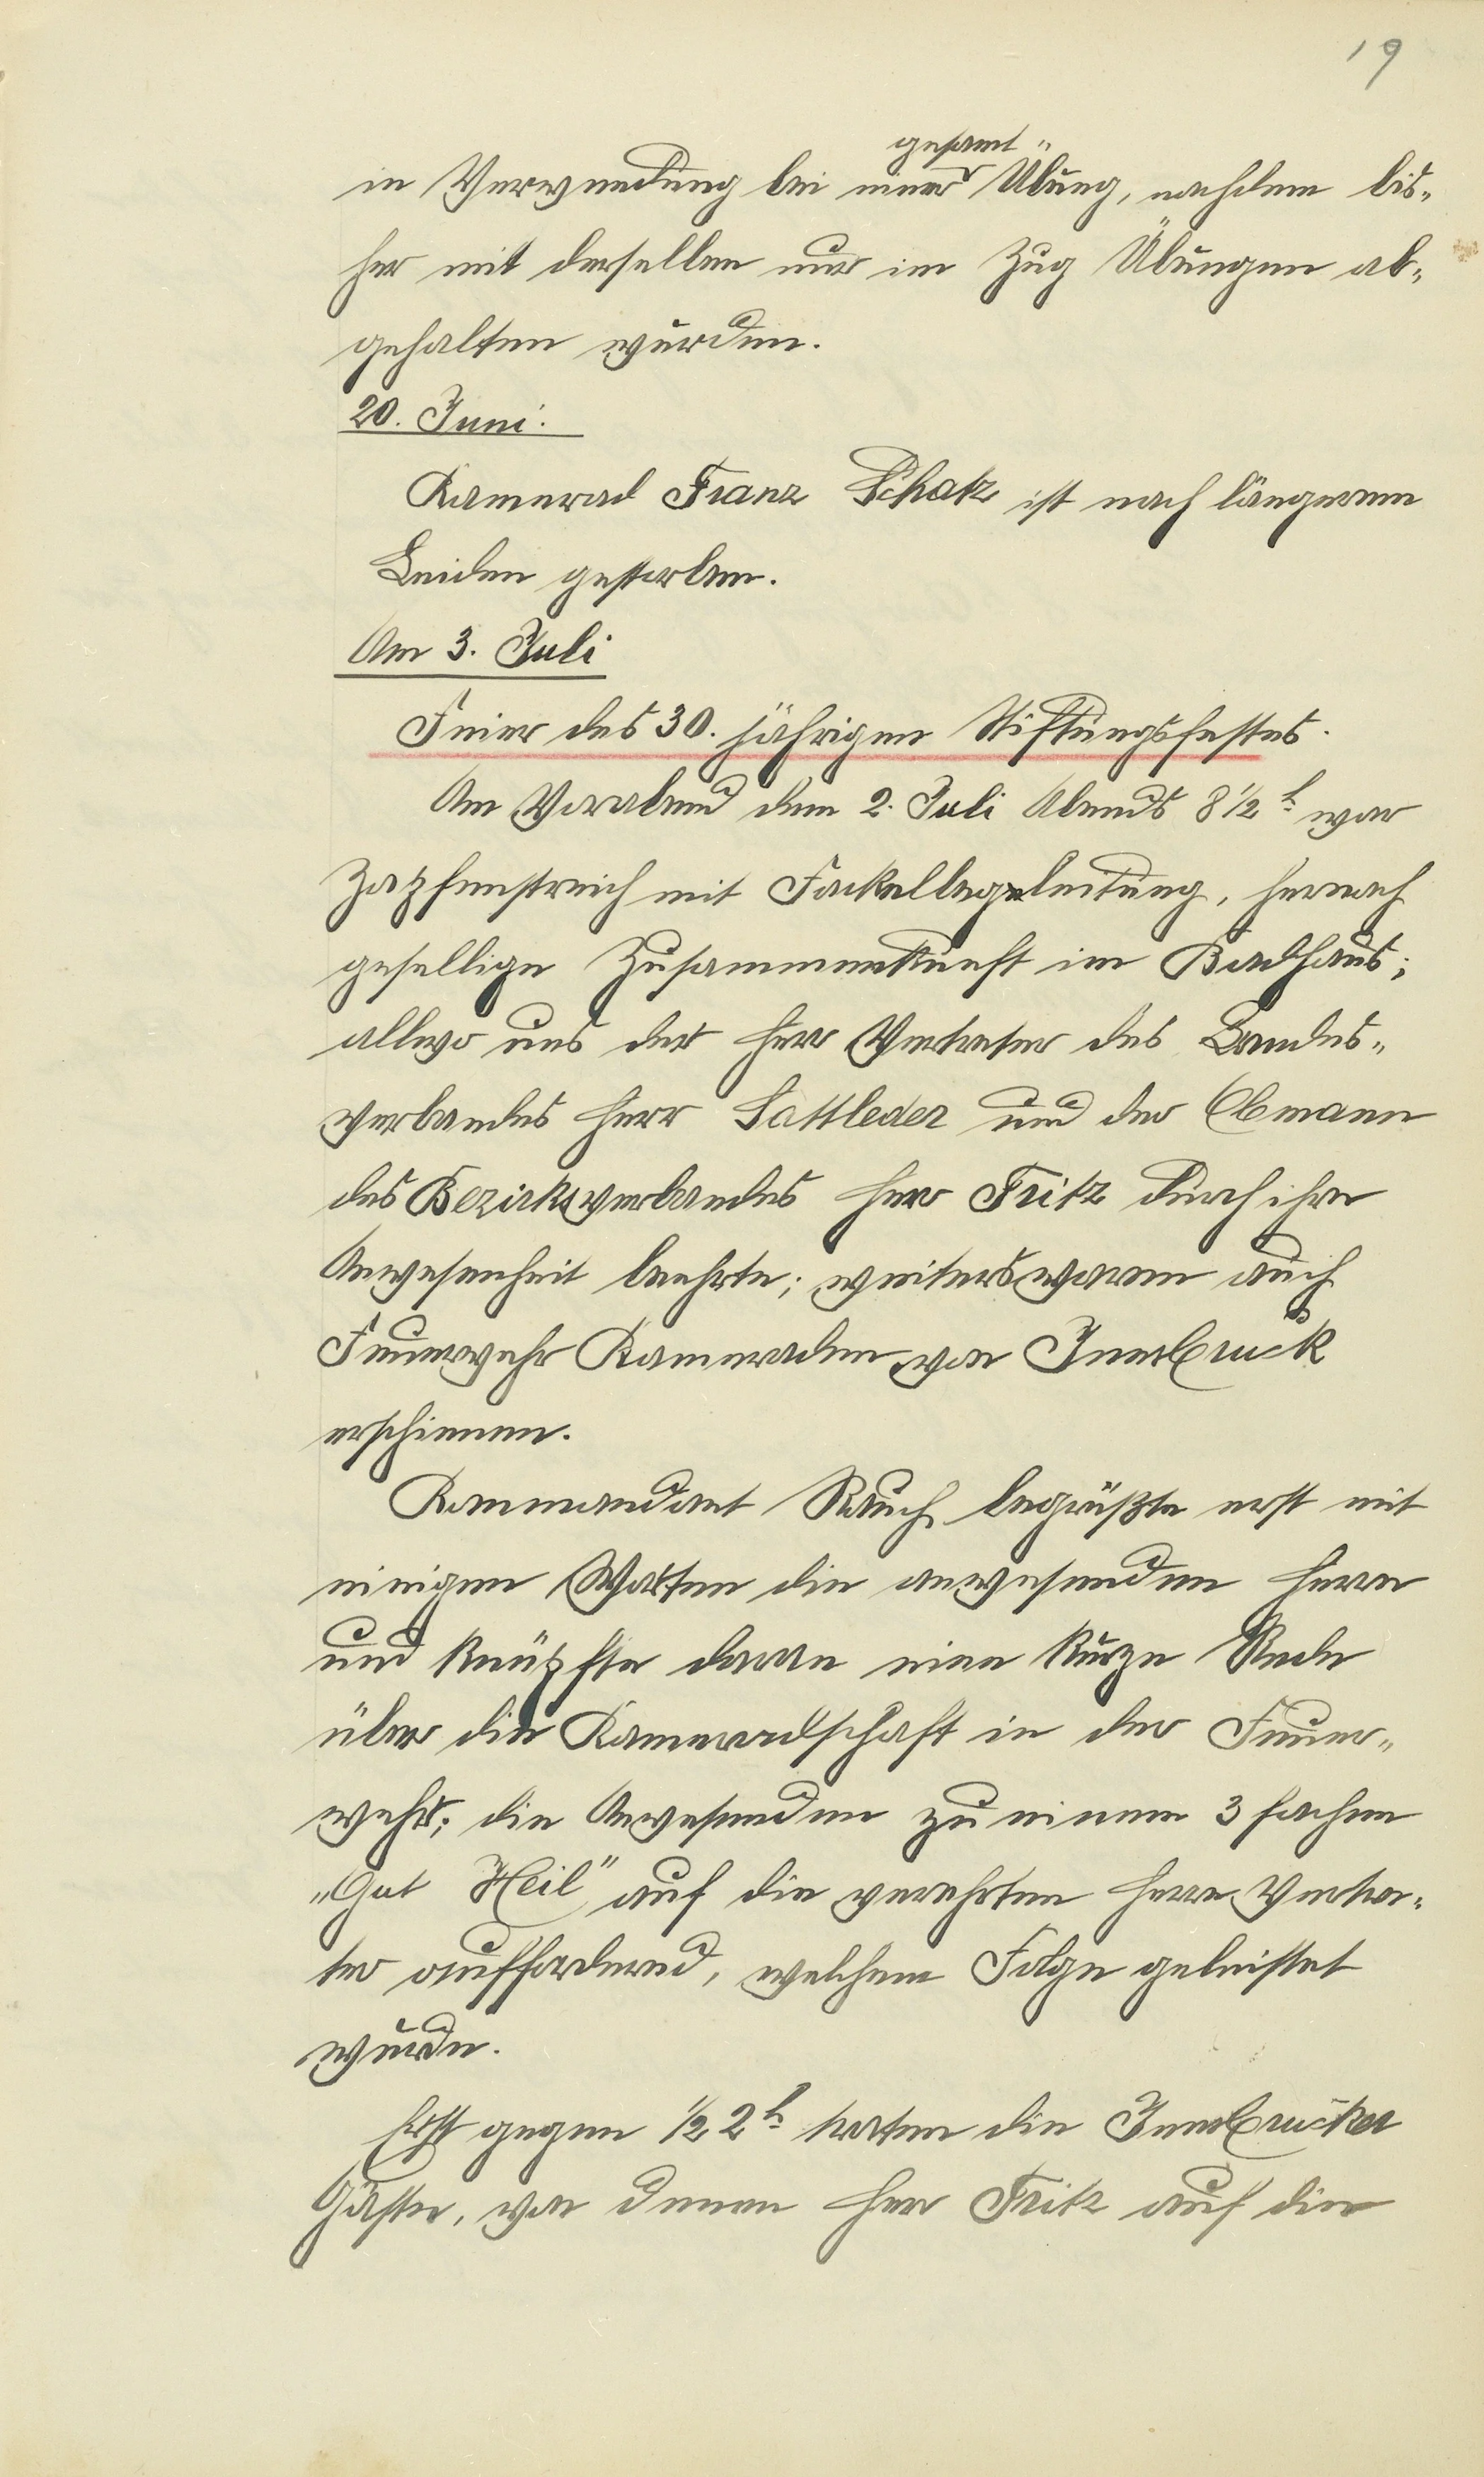 19
gesamt "
in Verwendung bei einer Übung, nachdem bis„
her mit derselben nur im Zug Übungen ab„
gehalten wurden.
20. Juni.
Kamerad Franz Schatz ist nach längerem
Leiden gestorben.
Am 3. Juli
Feier des 30. jährigen Stiftungsfestes.
Am Vorabend dem 2. Juli Abends 8 1/2 h. war
Zapfenstreich mit Fackelbegleitung, hernach
gesellige Zusammenkunft im Badhaus;
allwo uns der Herr Vertreter des Landes„
verbandes Herr Sattleder und der Obmann
des Bezirksverbandes Herr Fritz durch ihre
Anwesenheit beehrte; weiters waren auch
Feuerwehr Kameraden von Innsbruck
erschienen.
Kommandant Rauch begrüßte erst mit
einigen Worten die anwesenden Herrn
und knüpfte daran eine kurze Rede
über die Kameradschaft in der Feuer„
wehr; die Anwesenden zu einem 3 fachen
„Gut Heil" auf die verehrten Herrn Vertre„
ter auffordernd, welchem Folge geleistet
wurde.
Erst gegen 1/2 2 h. traten die Innsbrucker
Gäste, von denen Herr Fritz auf die